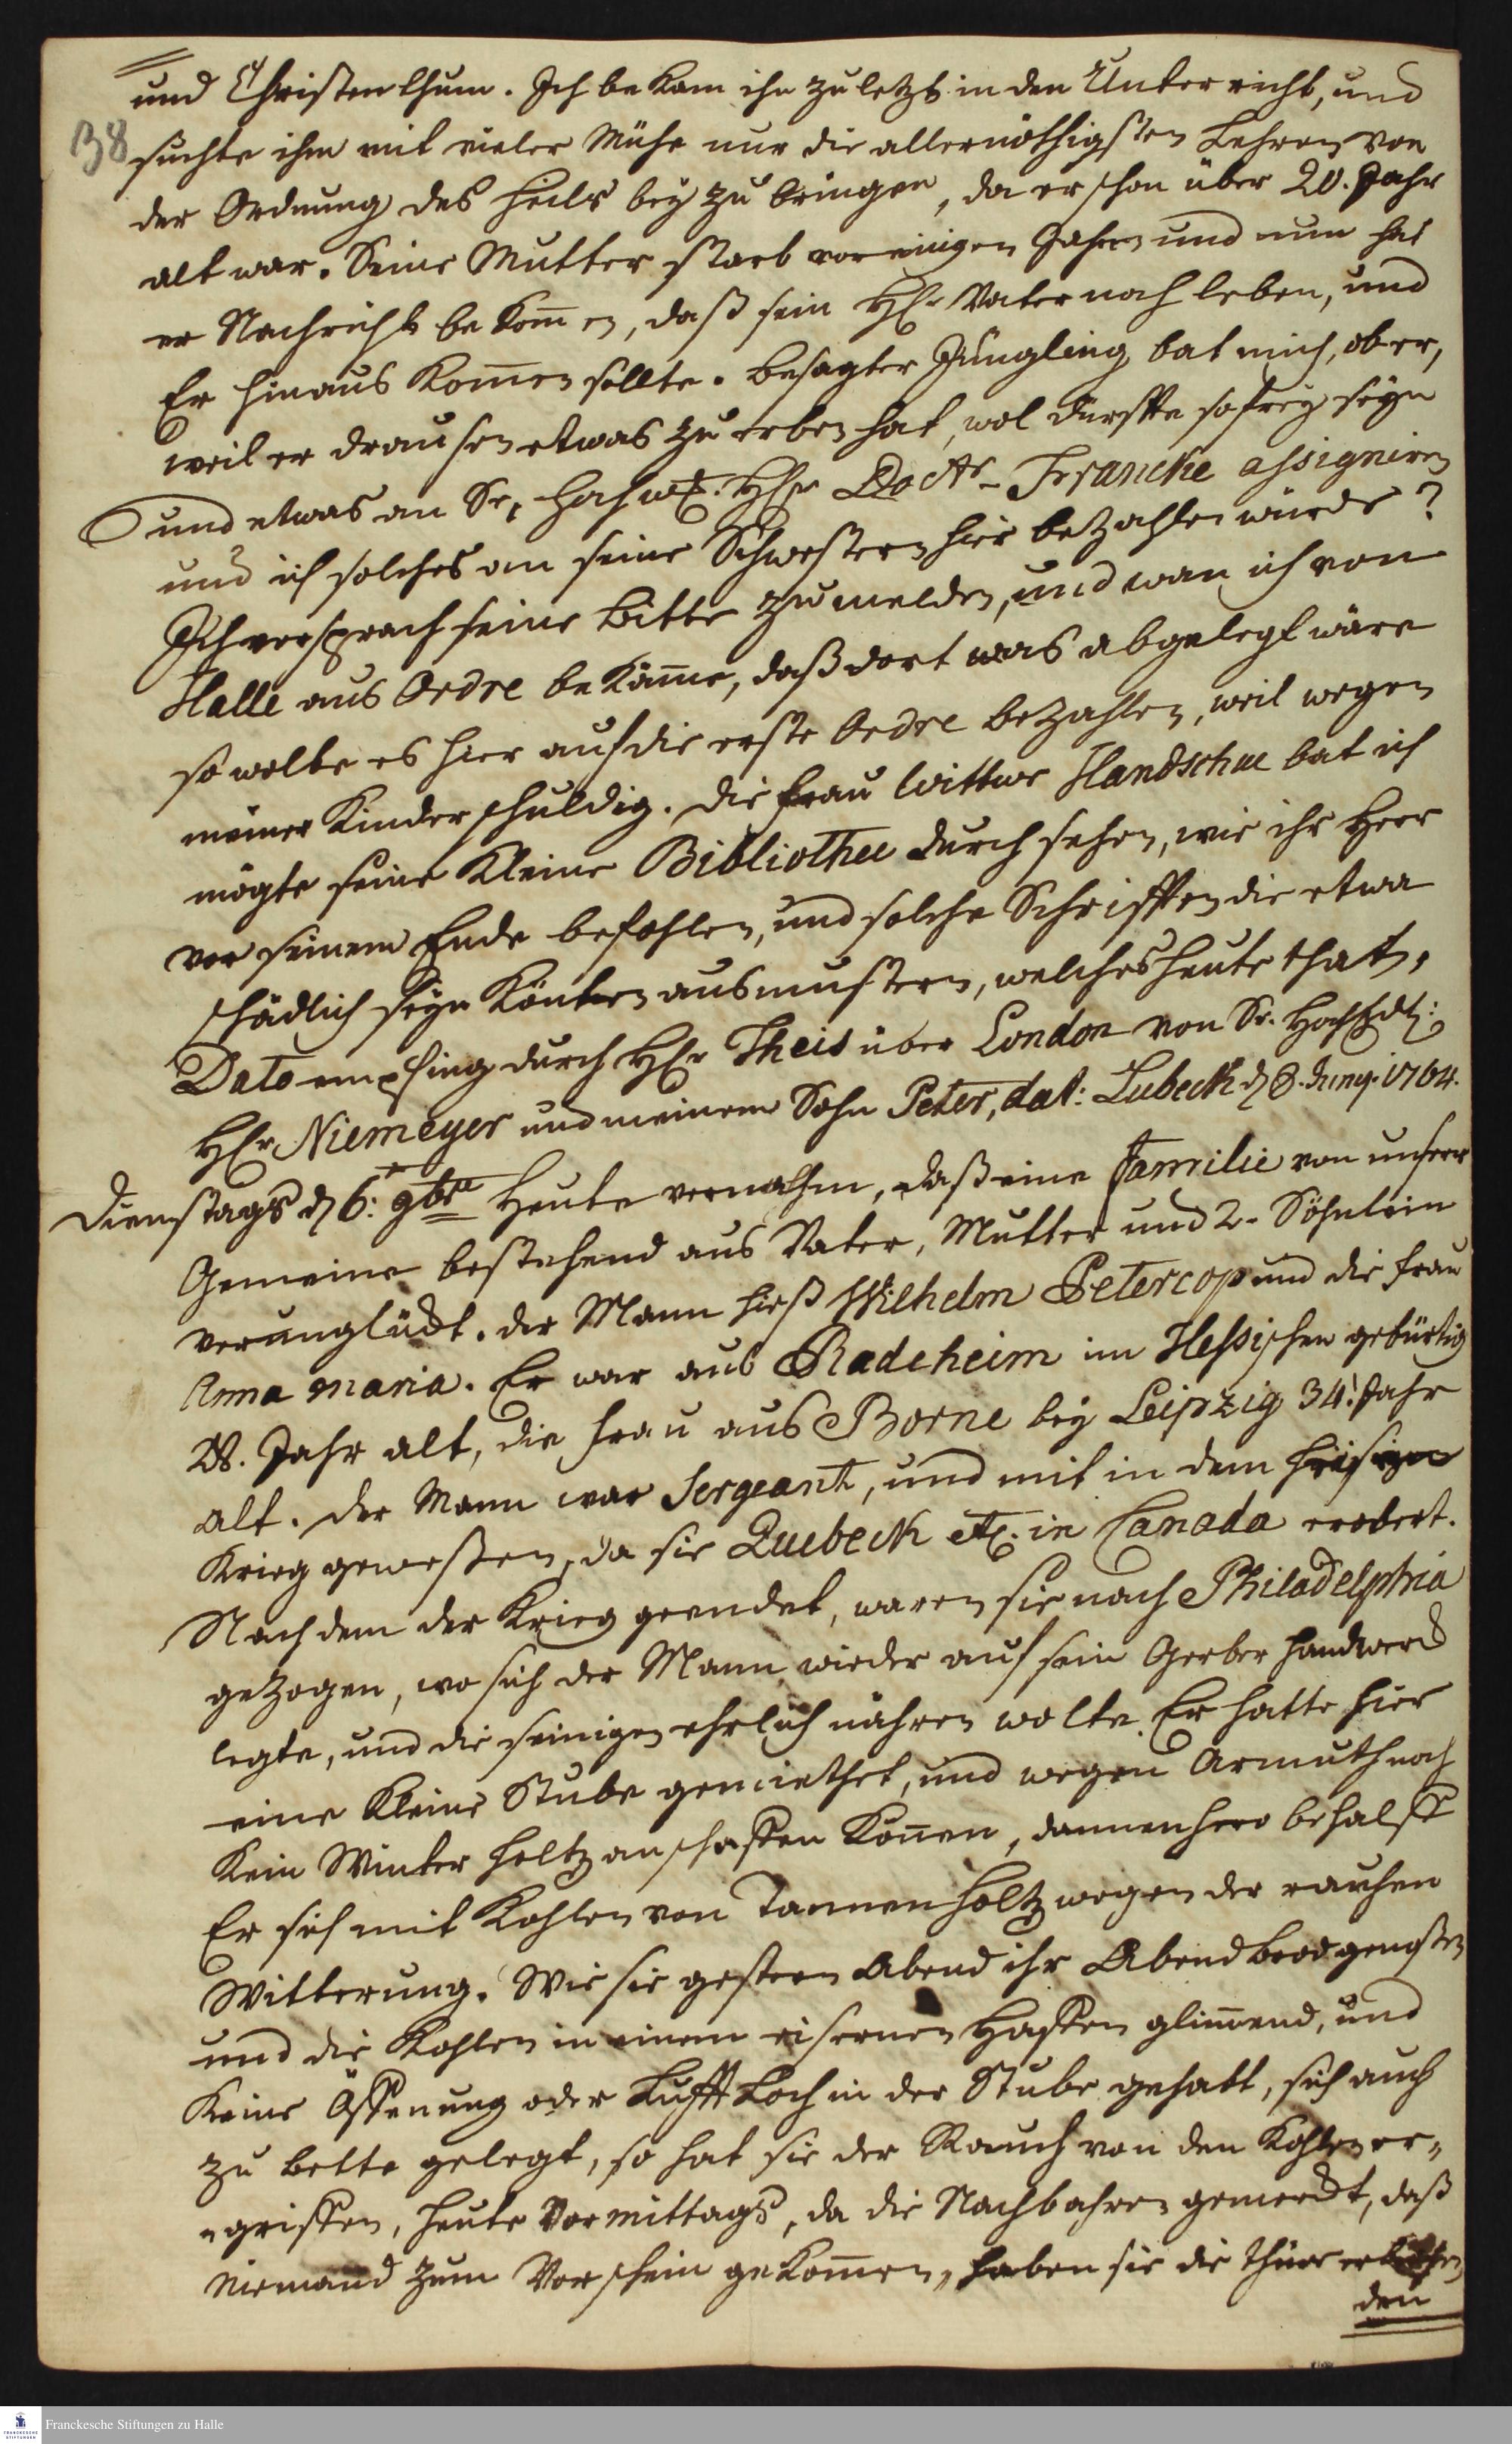 und Christenthum. Ich bekam ihn zuletzt in den Unterricht, und
38
suchte ihm mit vieler Mühe nur die allernöthigsten Lehren von
der Ordnung des Heils bey zu bringen, da er schon über 20. Jahr
alt war. Seine Mutter starb vor einigen Jahren und nun hat
er Nachricht bekom̄en, daß sein HErr Vater noch leben, und
Er hinaus kom̄en sollte. Besagter Jüngling bat mich, ob er,
weil er drausen etwas zu erben hat, wol dürffte so frey seyn
und etwas an Sr. Hochw. HErr Doctr Francke assigniren
und ich solches an seine Schwestern hier bezahlen würde?
Ich versprach seine Bitte zu melden, und wan ich von
Halle aus Ordre bekäme, daß dort was abgelegt wäre
so wolte es hier auf die erste Ordre bezahlen, weil wegen
meiner Kinder schuldig. Die Frau Wittwe Handschue bat ich
mögte seine kleine Bibliothec durchsehen, wie ihr Herr
vor seinem Ende befohlen, und solche Schrifften die etwa
schädlich seyn könten ausmustern, welches heute that.
Dato empfing durch HEr Theis über London von Sr. HochEdl:
HEr Niemeyer und meinem Sohn Peter, dat: Lubeck d 8. Juny. 1764.
Dienstags d 6: 9br Heute vernahm, daß eine Familie von unserer
Gemeine bestehend aus Vater, Mutter und 2. Söhnlein
verunglückt. Der Mann hieß Wilhelm Petercop und die Frau
Anna Maria. Er war aus Radeheim im Hessischen gebürtig
28. Jahr alt, die Frau aus Borne bey Leipzig 34. Jahr
alt. Der Mann war Sergeant, und mit in dem hiesigen
Krieg gewesen, da sie Quebeck etc. in Canada erobert.
Nachdem der Krieg geendet, waren sie nach Philadelphia
gezogen, wo sich der Mann wieder auf sein Gerber Handwerck
legte, und die seinigen ehrlich nähren wolte. Er hatte hier
eine kleine Stube gemiethet, und wegen Armuth noch
kein Winter Holtz anschaffen können, dannenhero behalff
Er sich mit Kohlen von Tannen Holtz wegen der rauhen
Witterung. Wie sie gestern Abend ihr Abendbrod genossen
und die Kohlen in einem eisernen Haffen glim̄end, und
keine Öffenung oder Lufft Loch in der Stube gehabt, sich auch
zu Bette gelegt, so hat sie der Rauch von den Kohlen er„
„griffen, heute Vormittags, da die Nachbahren gemerckt, daß
Niemand zum Vorschein gekom̄en, haben sie die Thüre
den
Franckesche Stiftungen zu Halle